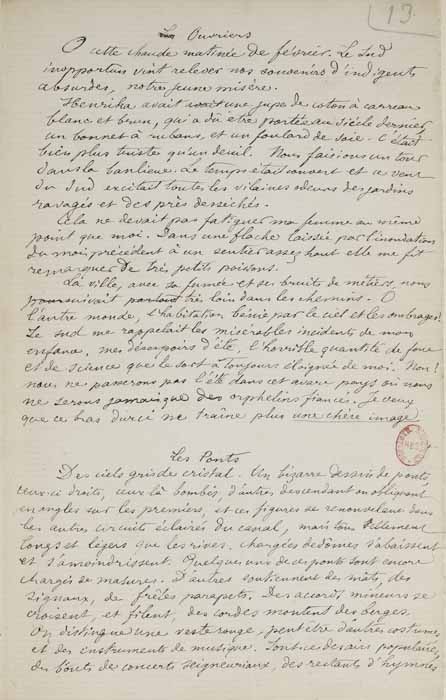 13.
Les Ouvriers
O cette chaude matinée de février. Le Sud
inopportun vint relever nos souvenirs d'indigents
absurdes, notre jeune misère.
Henrika avait une jupe de coton à carreau
blanc et brun, qui a dû être portée au siècle dernier,
un bonnet à rubans, et un foulard de soie. C'était
bien plus triste qu'un deuil. Nous faisions un tour
dans la banlieue. Le temps était couvert et ce vent
du Sud excitait toutes les vilaines odeurs des jardins
ravagés et des prés desséchés.
Cela ne devait pas fatiguer ma femme au même
point que moi. Dans une flache laissée par l'inondation
du mois précédent à un sentier assez haut elle me fit
remarquer de très petits poissons.
La ville, avec sa fumée et ses bruits de métiers, nous
suivait très loin dans les chemins. O
l'autre monde, l'habitation bénie par le ciel et les ombrages!
Le sud me rappelait les misérables incidents de mon
enfance, mes désespoirs d'été, l'horrible quantité de force
et de science que le sort a toujours éloignée de moi. Non!
nous ne passerons pas l'été dans cet avare pays où nous
ne serons jamais que des orphelins fiancés. Je veux
que ce bras durci ne traîne plus une chère image
Les Ponts
Des ciels gris de cristal. Un bizarre dessin de ponts,
ceux-ci droits, ceux-là bombés, d'autres descendant ou obliquant
en angles sur les premiers, et ces figures se renouvelant dans
les autres circuits éclairés du canal, mais tous tellement
longs et légers que les rives, chargées de dômes s'abaissent
et s'amoindrissent. Quelques uns de ces ponts sont encore
chargés de masures. D'autres soutiennent des mâts, des
signaux, de frêles parapets. Des accords mineurs se
croisent, et filent, des cordes montent des berges.
On distingue une veste rouge, peut-être d'autres costumes
et des instruments de musique. Sont-ce des airs populaires,
des bouts de concerts seigneuriaux, des restants d'hymnes